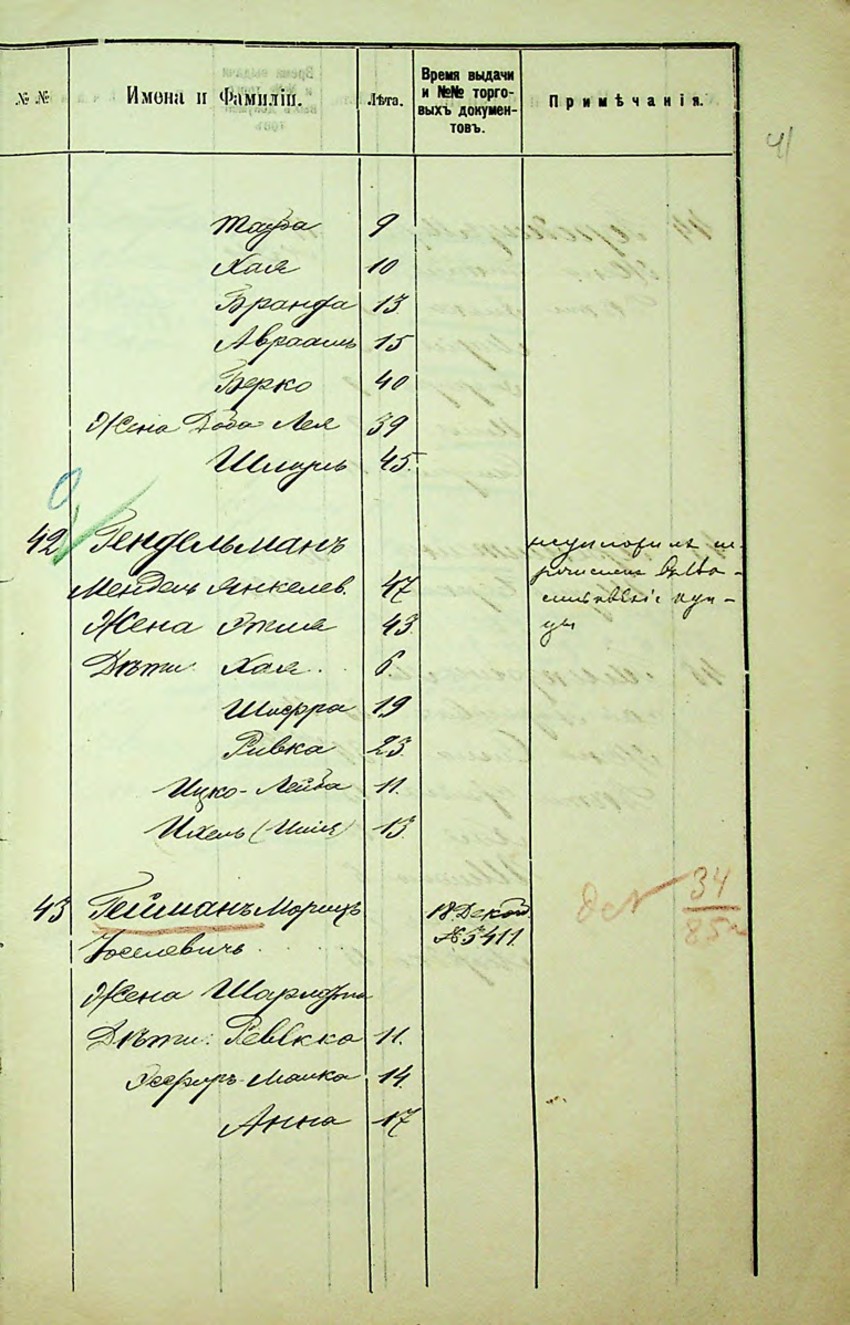 41
№ №
Имена и Фамиліи.
Лѣта.
Время выдачи
и №№ торго-
выхъ докумен-
товъ.
Примѣчанія.
Тауба 9
Хая 10
Бранда 13
Авраамъ 15
Берко 40
Жена Доба Лея 39
Шмуль 45.
42 Гендельманъ
Мендель Янкелев. 47
Жена Этля 43
Дѣти: Хая 6.
Шифра 19
Ривка 23.
Ицко-Лейба 11.
Ихель () 13.
43 Гейманъ Морицъ 18 Декаб.
Іоселевичъ № 3411.
Жена Шарлотта
Дѣти: Ревекка 11.
Эсфирь-Малка 14.
Анна 17
34
85